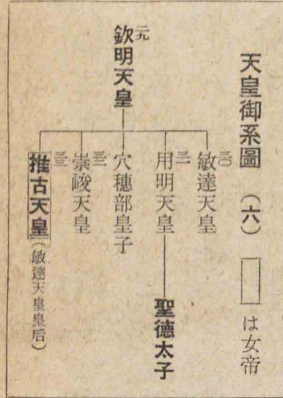 天皇御系圖（六）
は女帝
二九
欽明天皇
三〇
敏達天皇
三一
用明天皇
聖德太子
穴穗部皇子
三二
崇峻天皇
三三
推古天皇（敏達天皇皇后）